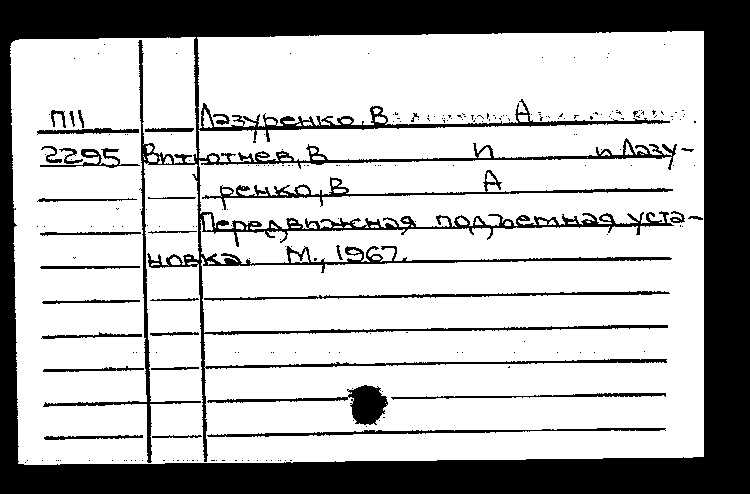 П11 Лазуренко, В А
2295 Витютнев, В И и Лазу-
ренко, В А
Передвижная подъемная уста-
новка. М., 1967.